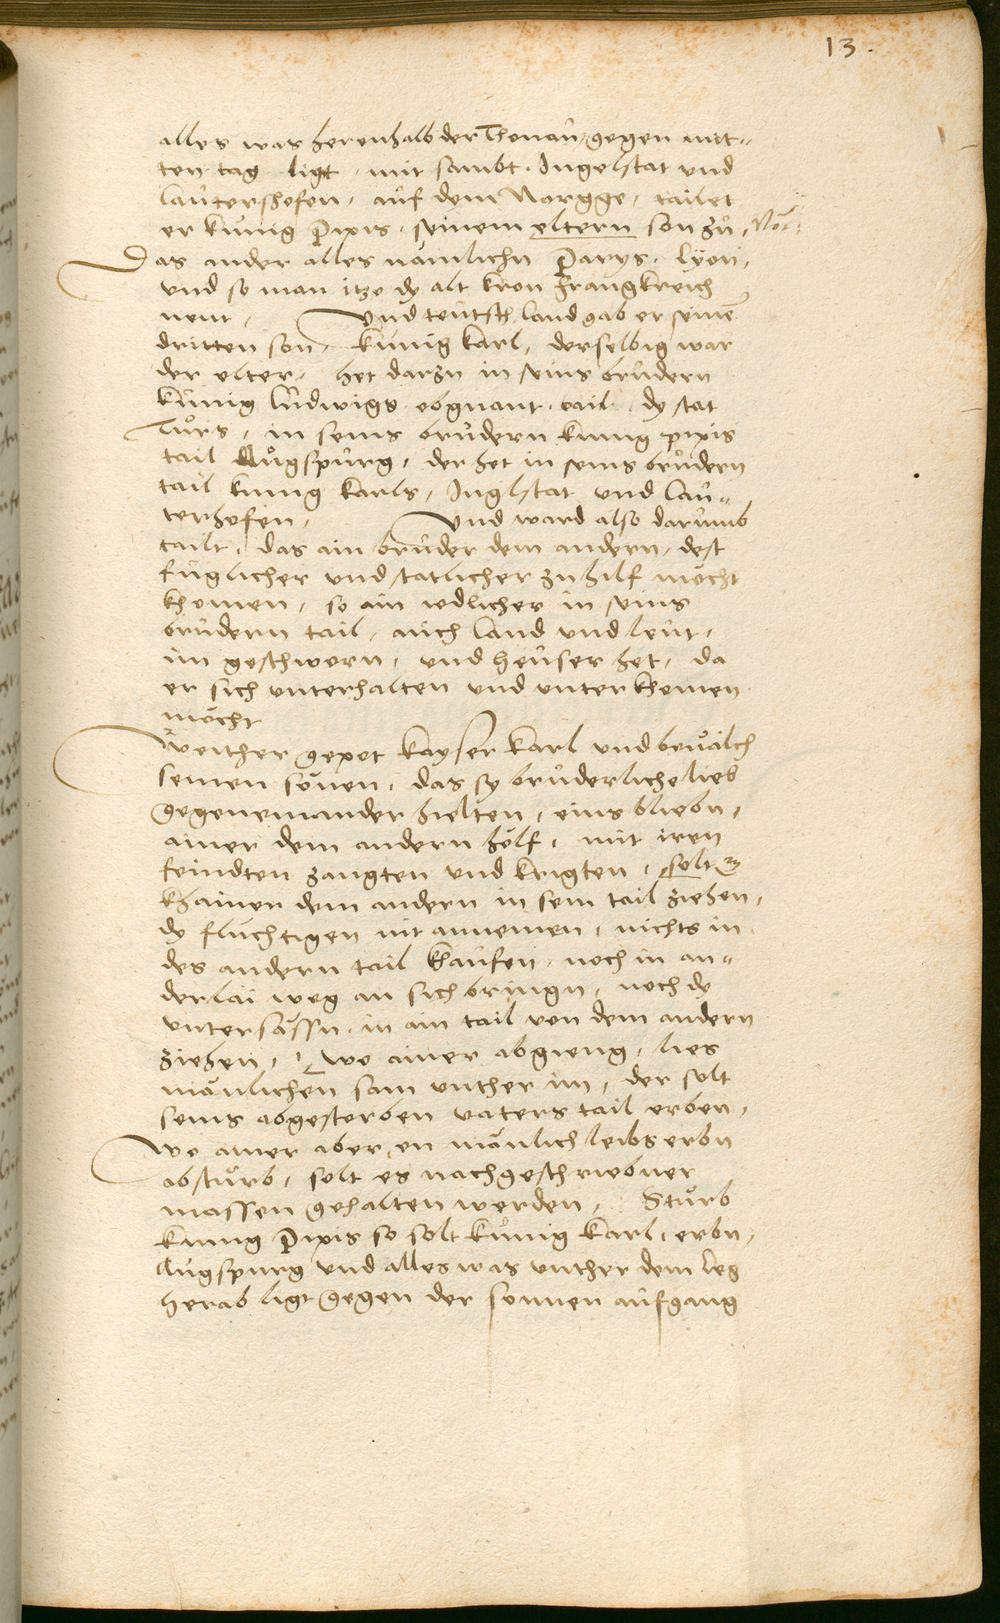 13.
alles was herenhalb der Thonau, gegen mit=
ten tag ligt, mit sambt Ingelstat und
lauttershofen, auf dem Norgge, tailet
er kunig Pipis, seinem eltern son zu, Nor:
Das ander alles nämlichn Parys, lÿon,
und so man itzo dy alt kron Frangkreich
nent, Und teutsch land gab er seinē
dritten son, kunig karl, derselbig war
der elter, het darzu in seins brudern
kunig ludwigs obgnant tail, dy stat
Turs, in seins brudern kunig pipis
tail Augspurg, der het in seins brudern
tail kunig karls, Inglstat und lau=
terhofen, Und ward also darumb
tailt, das ain bruder dem andern, dest
fuglicher und statlicher zu hilf möcht
khomen, so ain iedlicher in seins
brudern tail, auch land und leut,
im geschworn, und heuser het, da
er sich unterhalten und unterkhomen
möcht
Weither gepot kayser karl und bevalch
seinen sönen, das sy bruderliche lieb
gegeneinander hielten, eins blibn,
ainer dem andern hölf, mit iren
feindten zangten und krigten, solt
khainer dem andern in sein tail ziehen,
dy fluchtigen nit annemen, nichts in
des andern tail khaufen, noch in an=
derlai weg an sich bringn, noch dy
untersassn in ain tail von dem andern
ziehen, wo ainer abgieng, lies
mänlichen sam unther im, der solt
seins abgestorben vaters tail erben,
wo ainer aber, on mänlich leibs erbn
absturb, solt es nachgeschriebner
massen gehalten werden, Sturb
kunig Pipis so solt kunig karl, erbn,
Augspurg und alles was unther dem leg
herab ligt gegen der sonnen aufgang